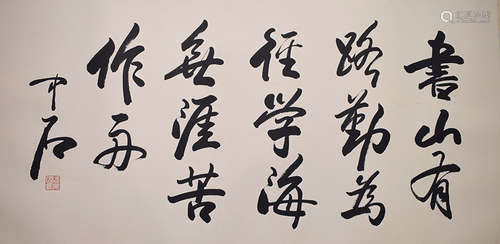 書山有
路勤為
徑學海
無涯苦
作舟
中石